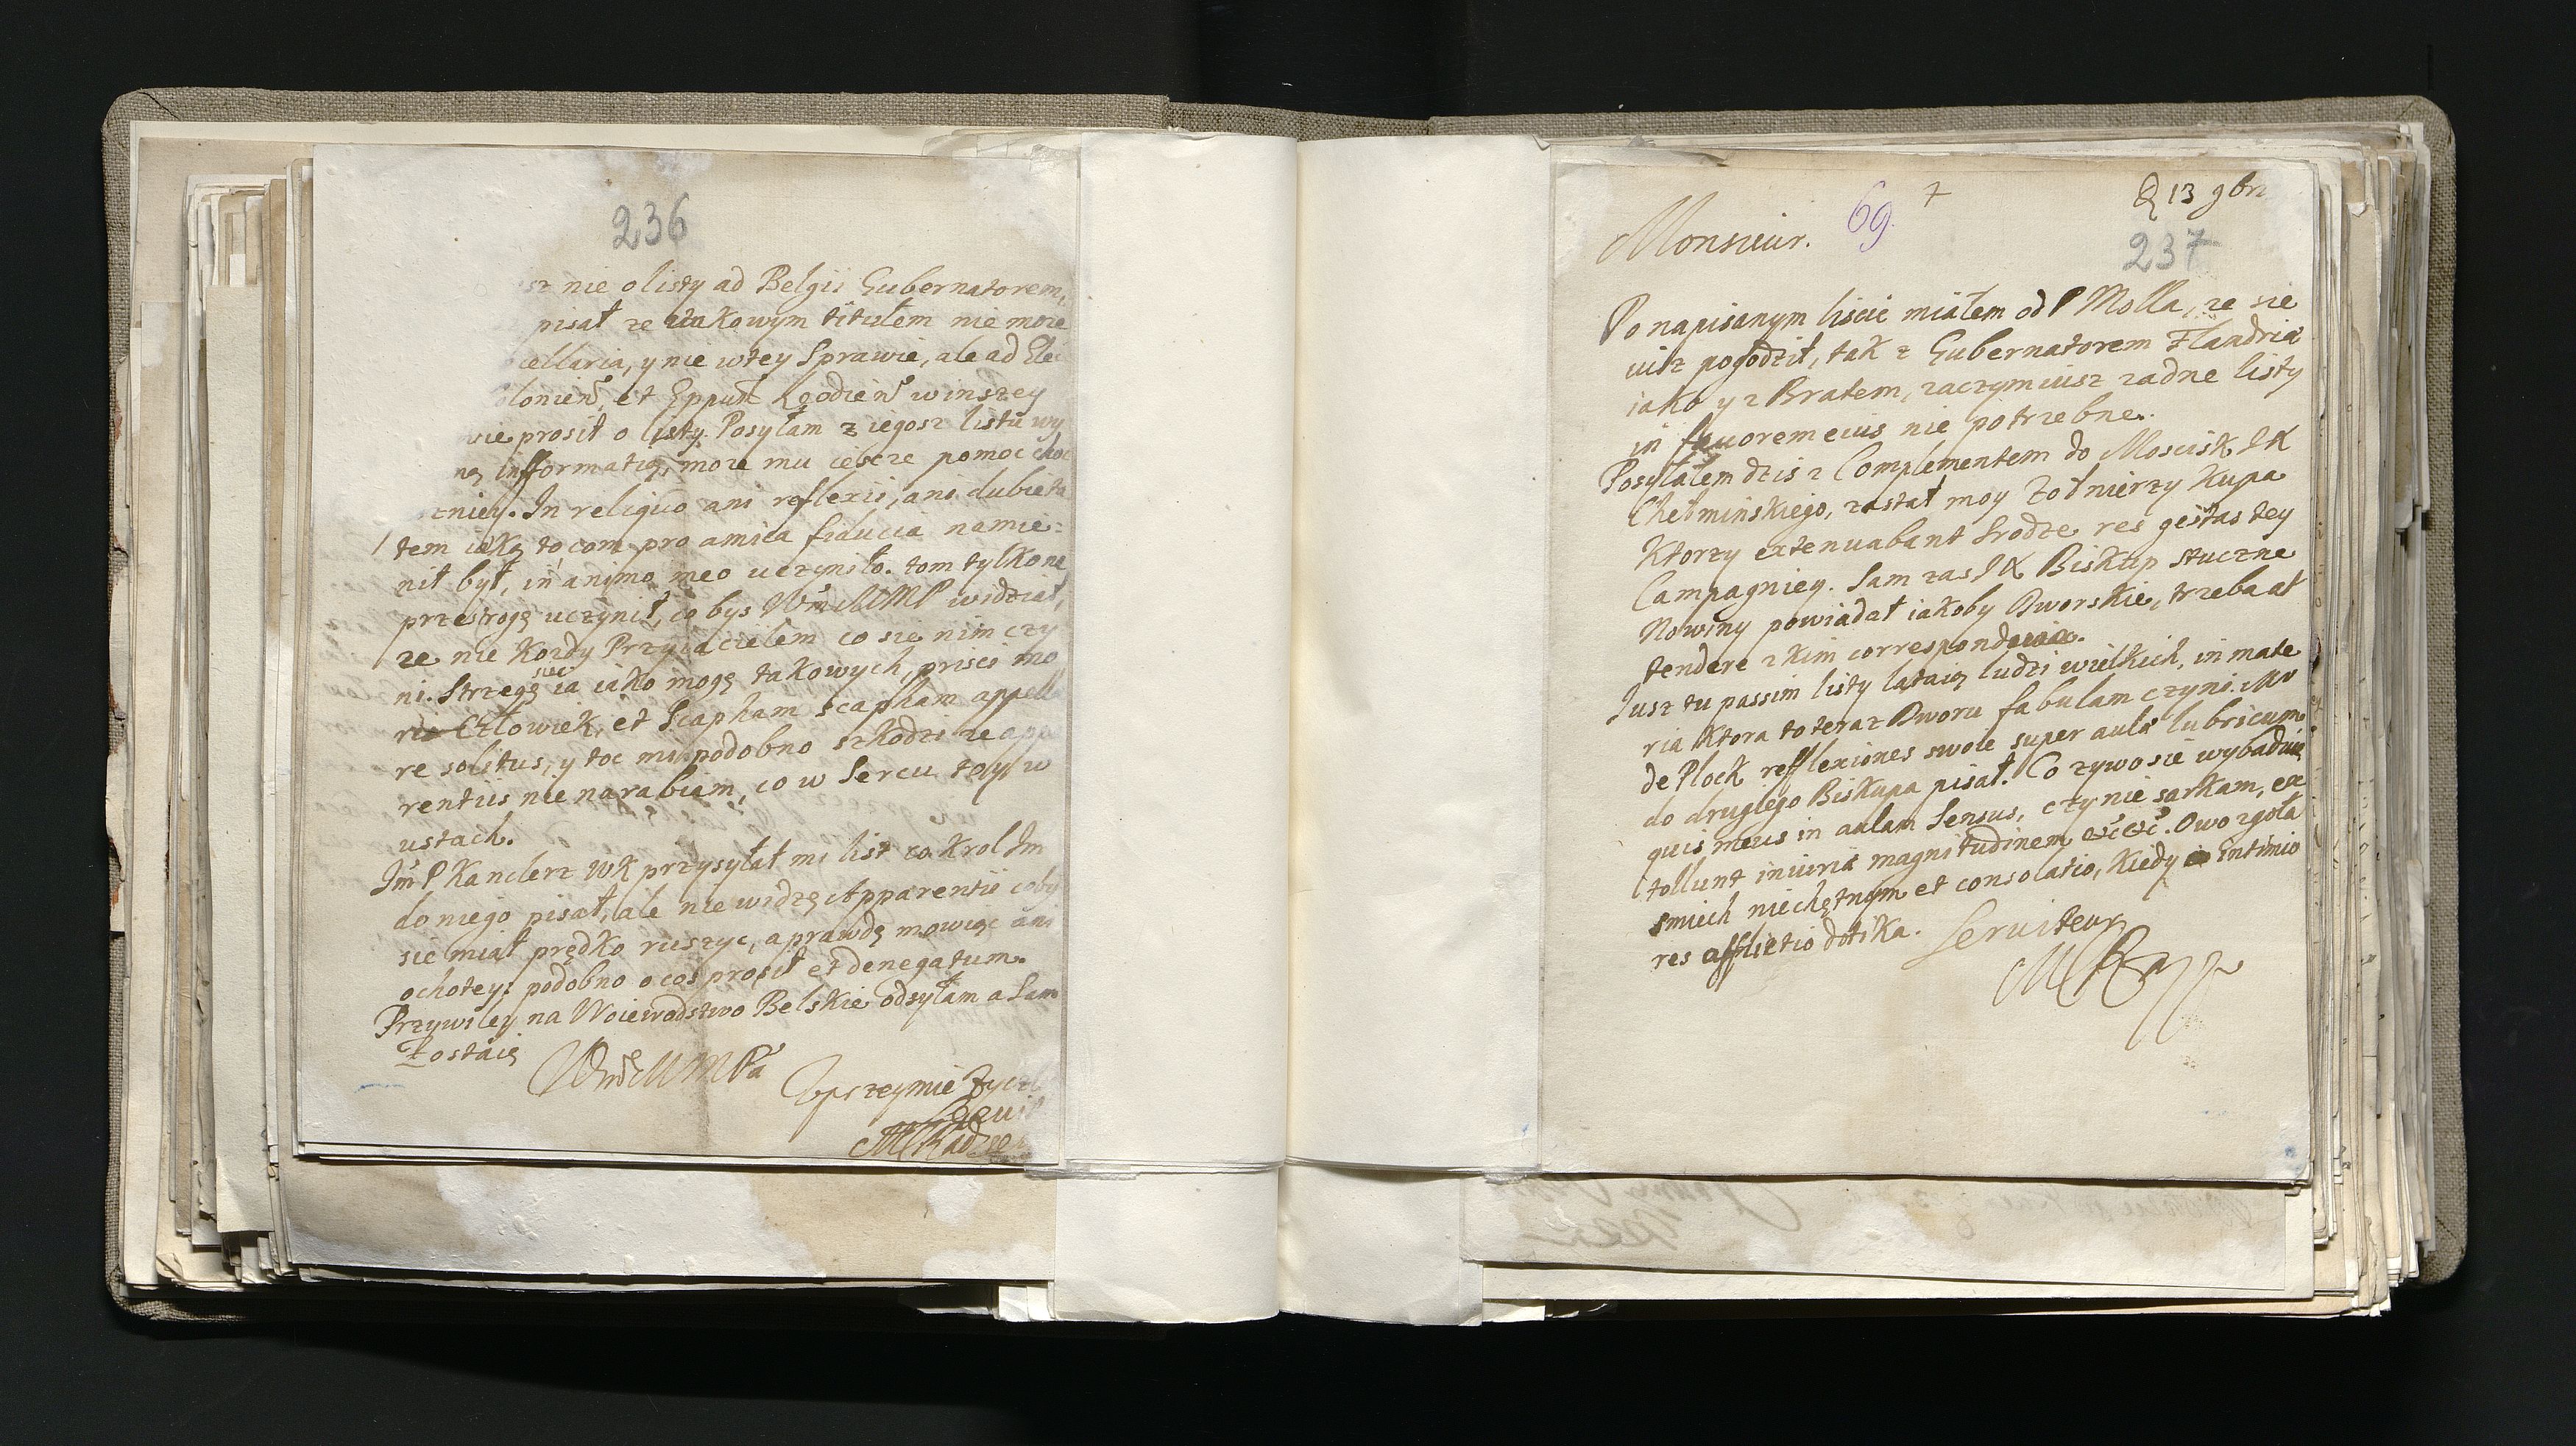 236
sz nie o listy ad Belgii Gubernatorem,
pisał ze takowym titułem nie moze
cellaria, y nie wtey Sprawie, ale ad Elec
olonien, et Eppum Leodien winszey
wie prosił o listy. Posyłam z iegosz listu wy
ną informatią, moze mu iescze pomoc choc
zniey. In reliquo ani reflexii, ani dubieta
tem iaką to, com pro amica fiducia namie:
nił był, in animo meo uczyniło. tom tylko ne
przestrogę uczynił, co bys WmMMP widział,
ze nie Kozdy Przyiacielem co się nim czy
ni. Strzegę się ia iako mogę takowych, prisci mo
ris Człowiek, et Scapham scapham appella
re solitus, y toc mi podobno szkodzi ze appa
rentiis nie narabiam, co w Sercu toy w
ustach.
Im P Kanclerz WK przysyłał mi list co Krol Im
do niego pisał, ale nie widzę Apparentii coby
sie miał prędko ruszyc, a prawdę mowiąc ani
ochotey; podobno o cos prosił et denegatum.
Przywiley na Woiewodstwo Belskie odsyłam a Sam
Zostaię
WmMMPa
Uprzeymie Zycz
M Radzie
Monsieur.
69.
7
D 13 9br
237
Po napisanym liscie miałem od P Molla, ze sie
iusz pogodził, tak z Gubernatorem Flandriæ
iako y z Bratem, zaczym iusz zadne listy
in fauorem eius nie potrzebne.
Posyłałem dzis z Complementem do Moscisk IX
Chełminskiego, zastał moy Zołnierzy Kupa
Ktorzy extenuabant Srodze res gestas tey
Campagniey. Sam zas IX Biskup stuczne
Nowiny powiadał iakoby Dworskie, trzeba at
tendere z kim corresponduie.
Iusz tu passim listy lataią ludzi wielkich, in mate
ria Ktora to teraz Dworu fabulam czyni. Mr
de Plock reflexiones swoie super aulæ lubricum
do drugiego Biskupa pisał. Co zywo sie wybaduie
quis meus in aulam Sensus, czy nie sarkam, ex
tollunt iniuriæ magnitudinem, etc etc. Owo zgoła
smiech niechętnym et consolatio, Kiedy intimio
res afflictio dotika.
Seruiteur